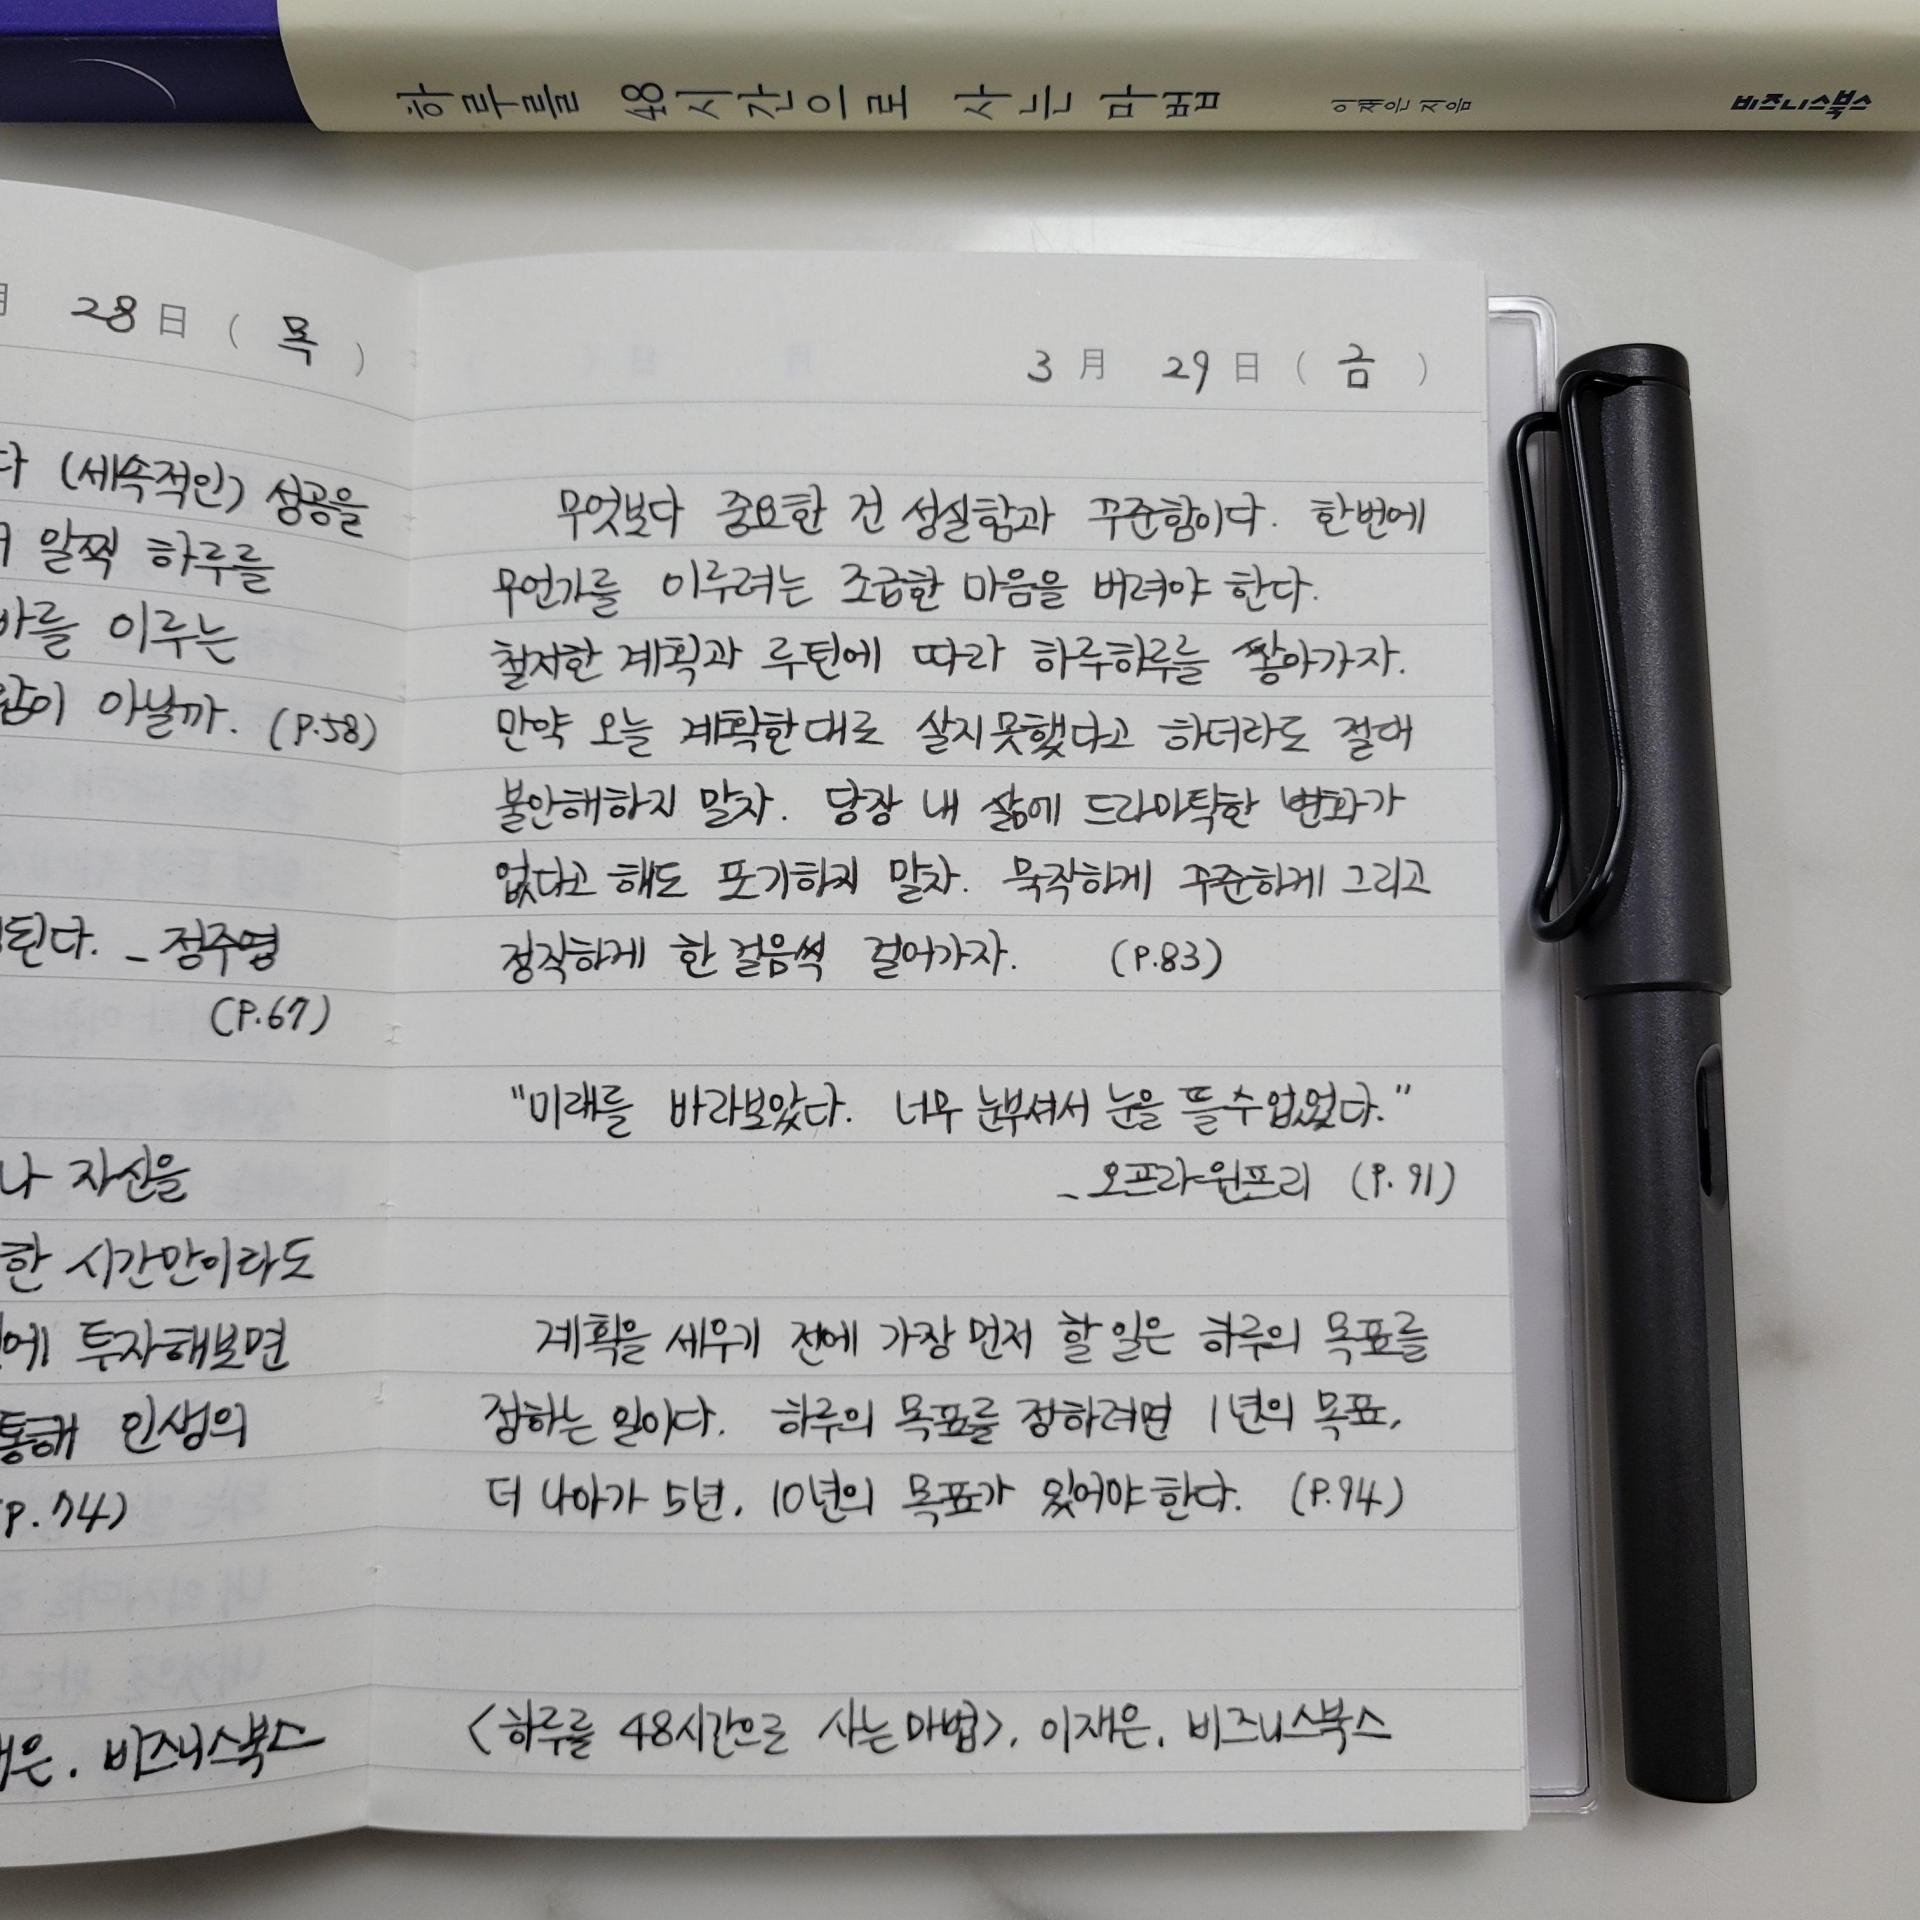 하루를 48시간으로 사는 마법 이재은 지음 비즈니스북스
月 28日 ( 목 )
다 (세속적인) 성공을
일찍 하루를
바를 이루는
아닐까. (P.58)
된다. _ 정주영
(P.67)
나 자신을
한 시간만이라도
에 투자해보면
통해 인생의
(P.74)
재은. 비즈니스북스
3月 29日 ( 금 )
무엇보다 중요한 건 성실함과 꾸준함이다. 한번에
무언가를 이루려는 조급한 마음을 버려야 한다.
철저한 계획과 루틴에 따라 하루하루를 쌓아가자.
만약 오늘 계획한대로 살지못했다고 하더라도 절대
불안해하지 말자. 당장 내 삶에 드라마틱한 변화가
없다고 해도 포기하지 말자. 묵직하게 꾸준하게 그리고
정직하게 한 걸음씩 걸어가자. (P.83)
"미래를 바라보았다. 너무 눈부셔서 눈을 뜰수없었다."
_ 오프라 윈프리 (P.91)
계획을 세우기 전에 가장 먼저 할 일은 하루의 목표를
정하는 일이다. 하루의 목표를 정하려면 1년의 목표,
더 나아가 5년, 10년의 목표가 있어야한다. (P.94)
<하루를 48시간으로 사는 마법>, 이재은, 비즈니스북스